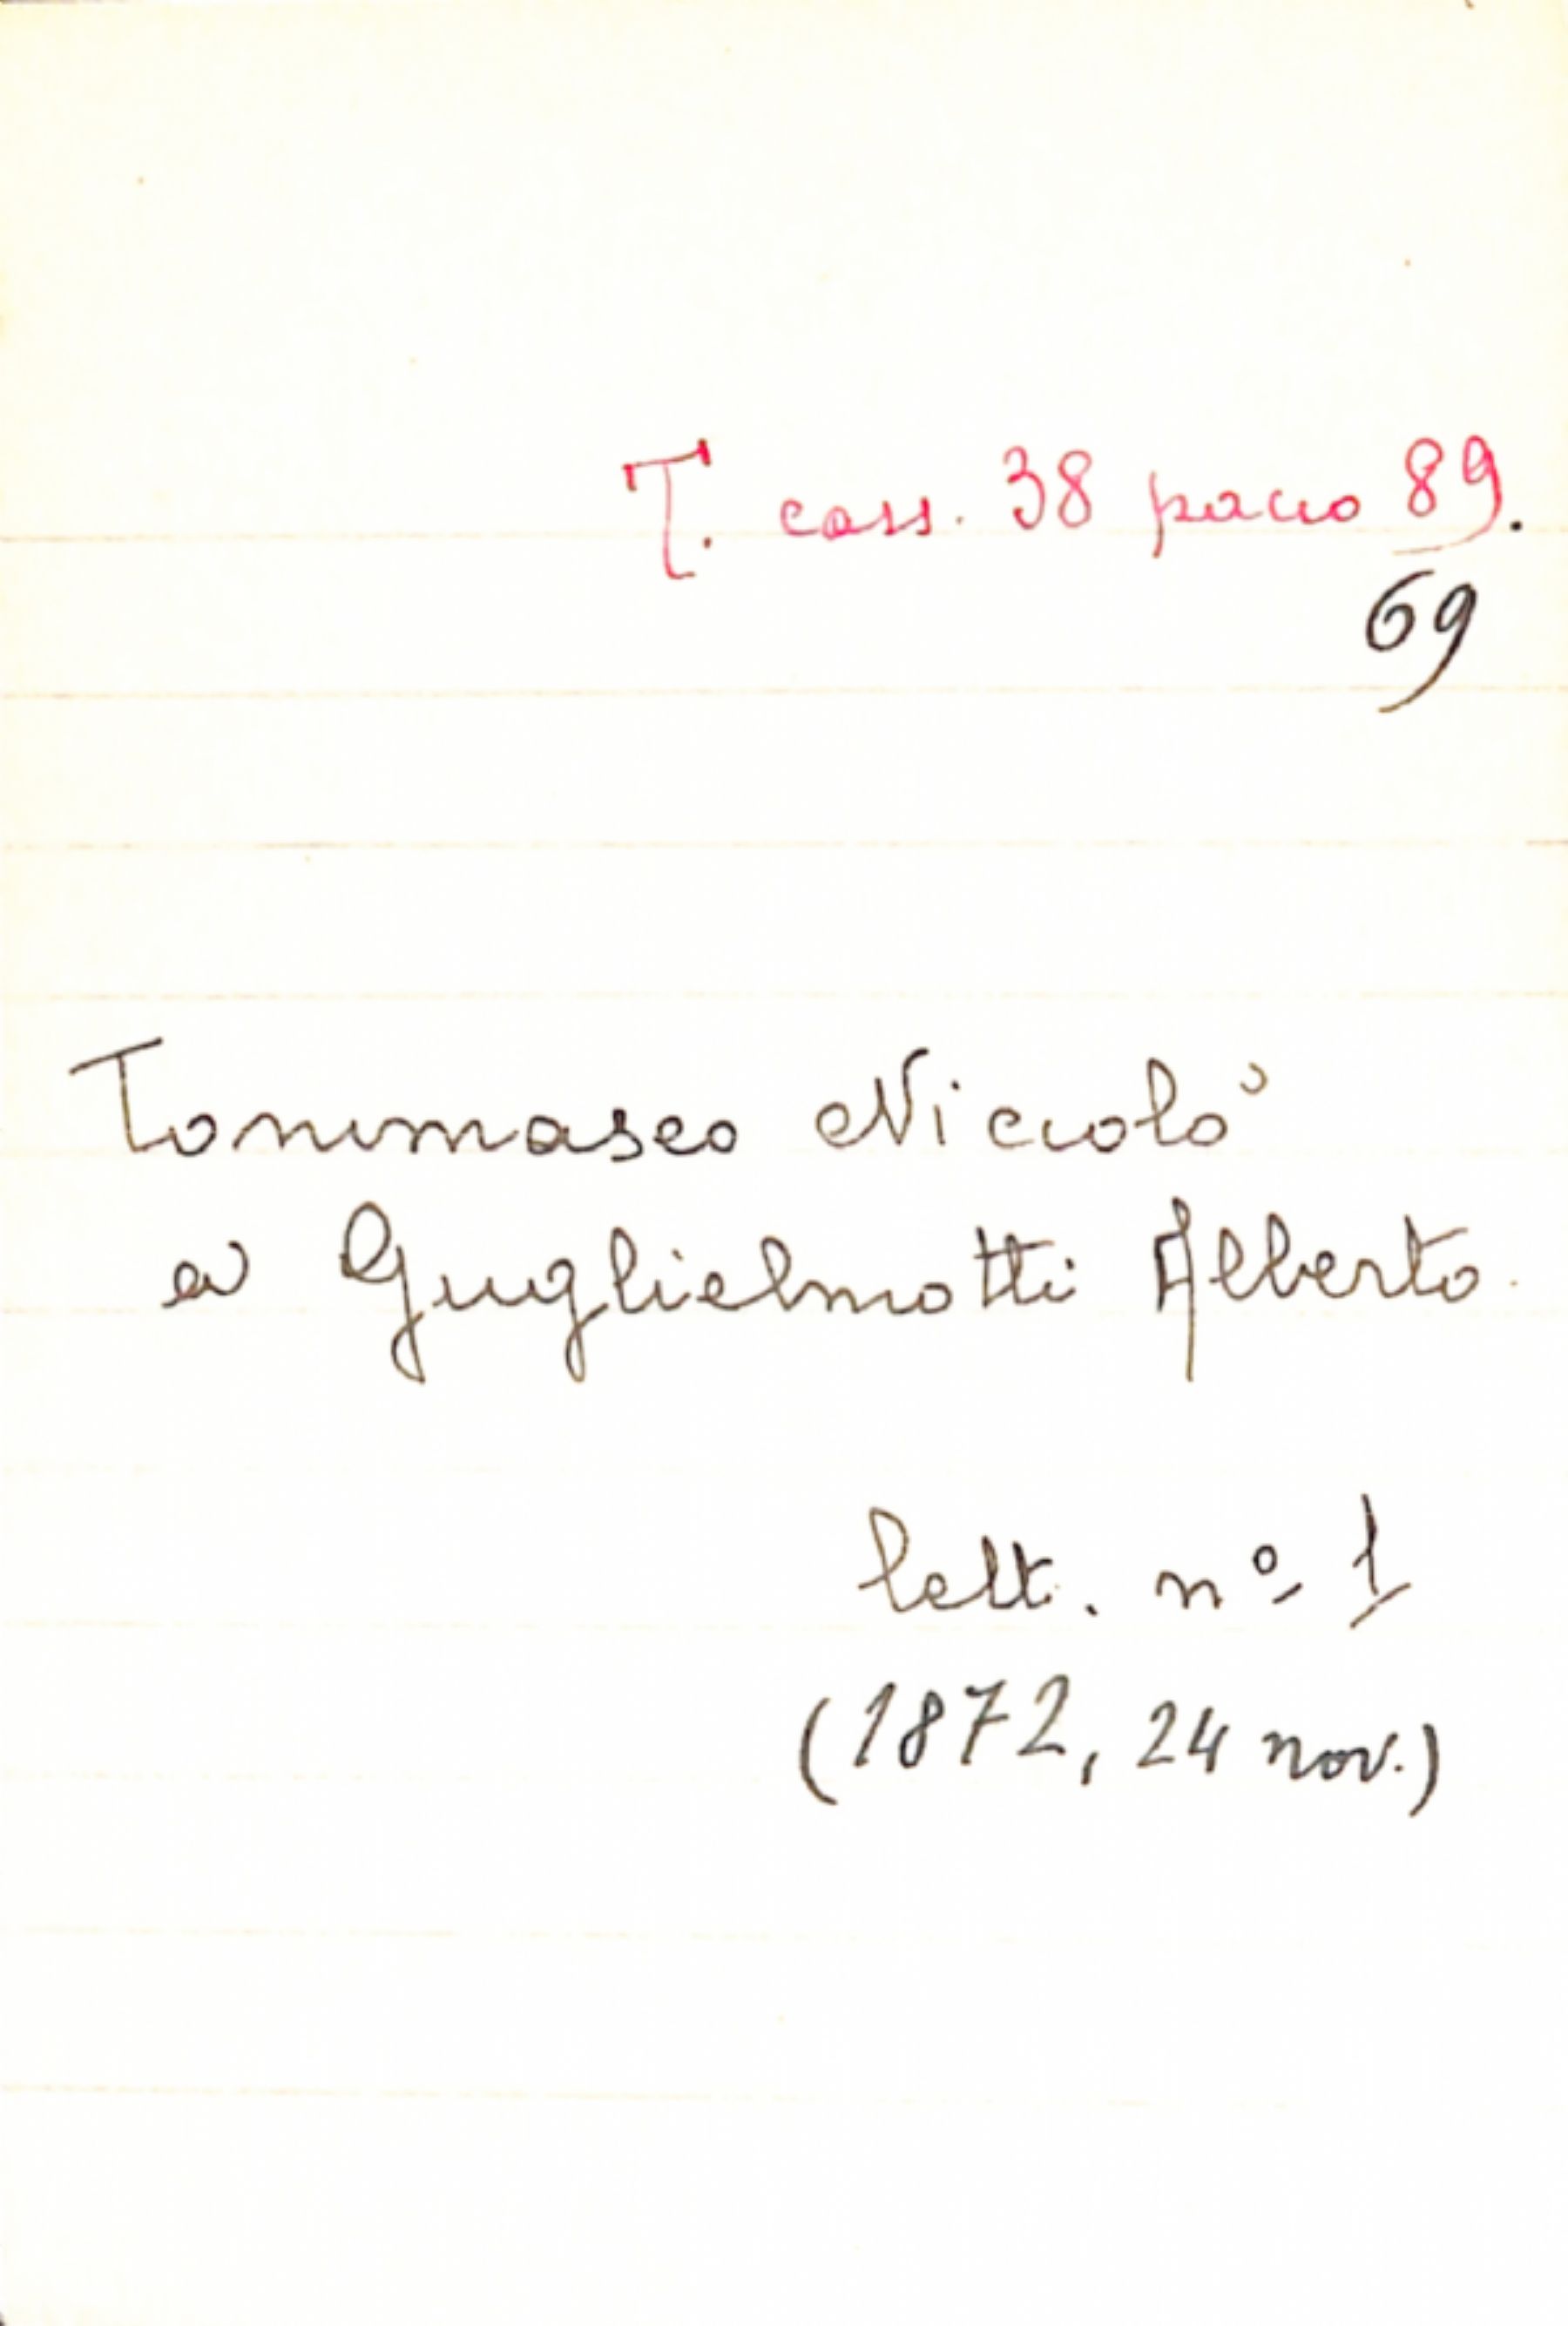 T. cass. 38 pacco 89.
69
Tommaseo Niccolò
a Guglielmotti Alberto.
lett. nº 1
(1872, 24 nov.)